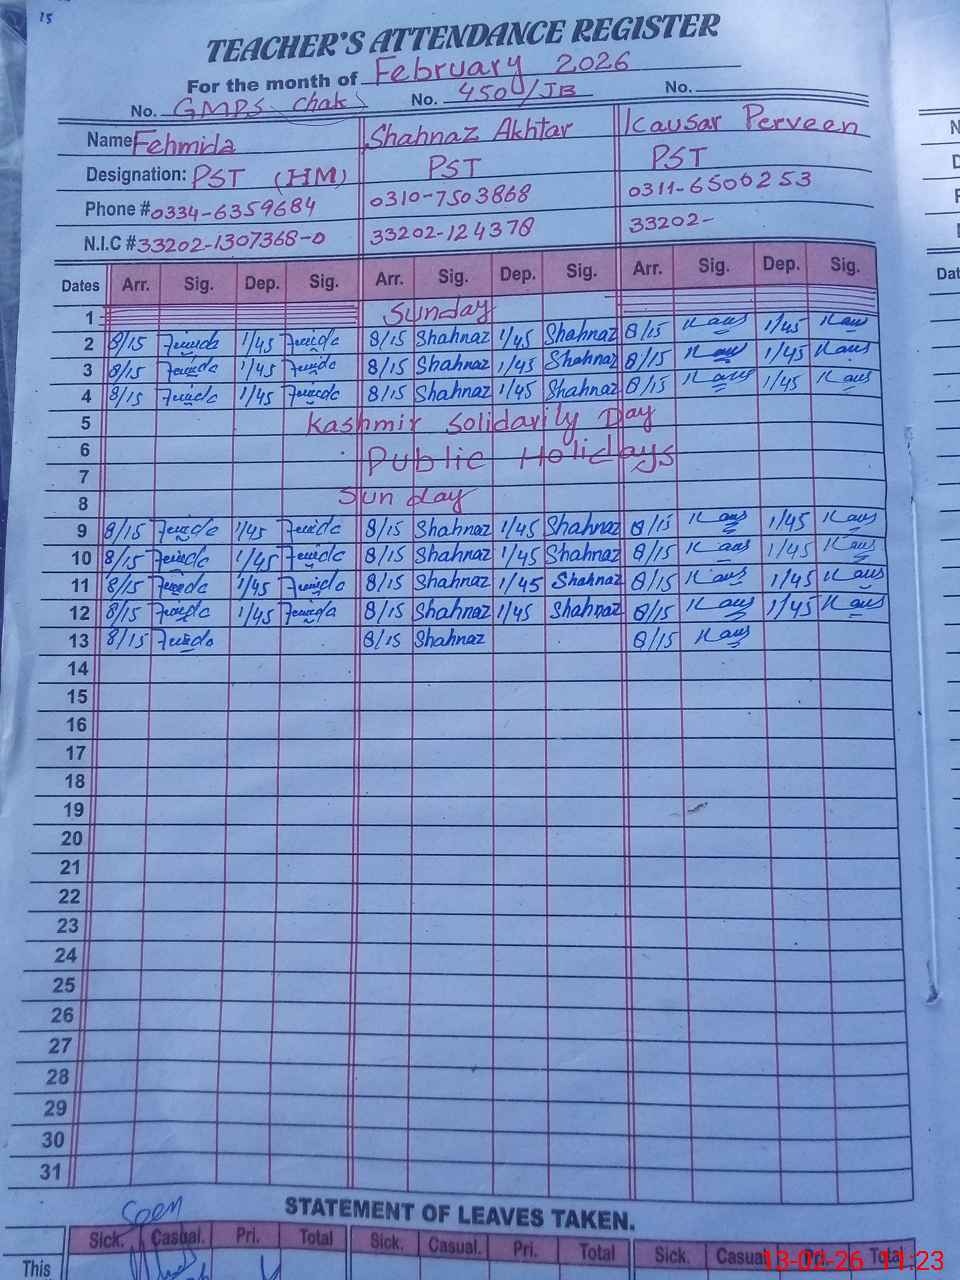 15
TEACHER'S ATTENDANCE REGISTER
For the month of February 2026
No. GMPS Chak No. 450/JB No.
Name Fehmida Shahnaz Akhtar Kausar Perveen
Designation: PST (HM) PST PST
Phone # 0334-6359684 0310-7503868 0311-6500253
N.I.C # 33202-1307368-0 33202-124378 33202-
Dates Arr. Sig. Dep. Sig. Arr. Sig. Dep. Sig. Arr. Sig. Dep. Sig.
1 Sunday
2 8/15 1/45 8/15 Shahnaz 1/45 Shahnaz 8/15 Kaus 1/45 Kaus
3 8/15 1/45 8/15 Shahnaz 1/45 Shahnaz 8/15 Kaus 1/45 Kaus
4 8/15 1/45 8/15 Shahnaz 1/45 Shahnaz 8/15 Kaus 1/45 Kaus
5 Kashmir Solidarily Day
6 Public Holidays
7
8 Sunday
9 8/15 1/45 8/15 Shahnaz 1/45 Shahnaz 8/15 Kaus 1/45 Kaus
10 8/15 1/45 8/15 Shahnaz 1/45 Shahnaz 8/15 Kaus 1/45 Kaus
11 8/15 1/45 8/15 Shahnaz 1/45 Shahnaz 8/15 Kaus 1/45 Kaus
12 8/15 1/45 8/15 Shahnaz 1/45 Shahnaz 8/15 Kaus 1/45 Kaus
13 8/15 8/15 Shahnaz 8/15 Kaus
14
15
16
17
18
19
20
21
22
23
24
25
26
27
28
29
30
31
Seen
STATEMENT OF LEAVES TAKEN.
Sick. Casual. Pri. Total Sick. Casual. Pri. Total Sick. Casual Pri. Total
This
13-02-26 11:23
N
D
Dat